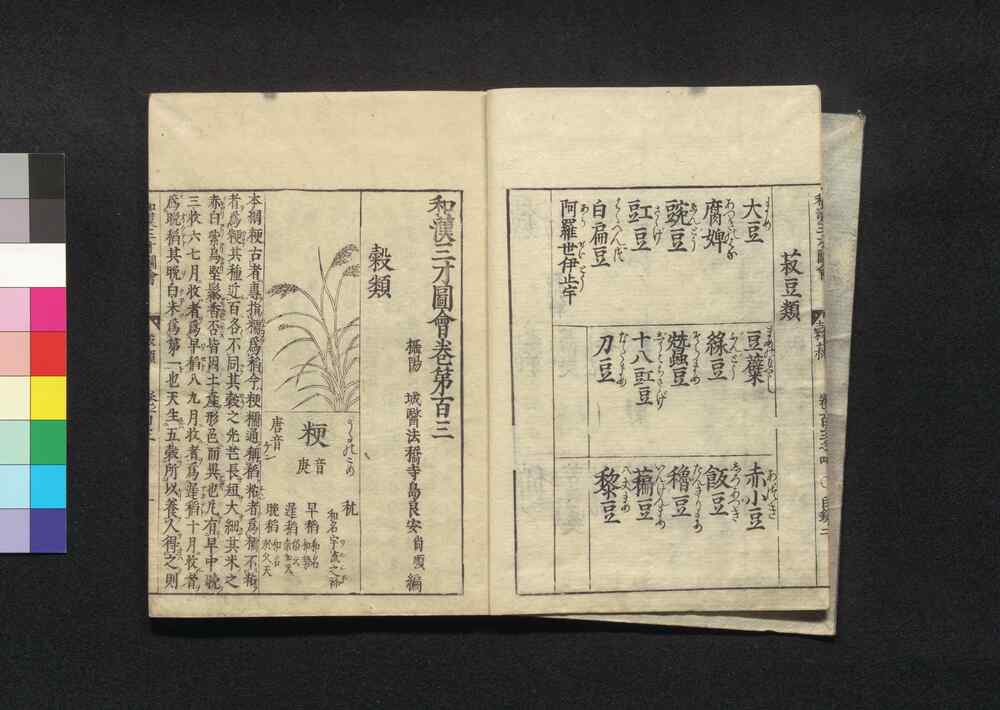 菽豆類
大豆
まめ
豆蘗
赤小豆
腐婢
飯豆
豌豆
綠豆
穭豆
豇豆
䜶豆
藊豆
さゝげ
白扁豆
十八豇豆
黎豆
阿羅世伊止宇
刀豆
なたまめ
和漢三才圖會卷第百三
攝陽 城醫法橋寺島良安尚順 編
穀類
粳
うるのこめ
音庚
唐音
秔
和名宇流之祢
早稻
和名
遲稻
晚稻
和名
本綱粳古者專指糯爲稻今粳糯通稱稻粘者爲糯不粘
者爲粳其種近百各不同其穀之光芒長短大細其米之
赤白紫烏堅鬆香否皆因土產形色而異也凡有早中晚
三收六七月收者爲早稻八九月收者爲遲稻十月收者
爲晚稻其晚白米爲第一也天生五穀所以養人得之則